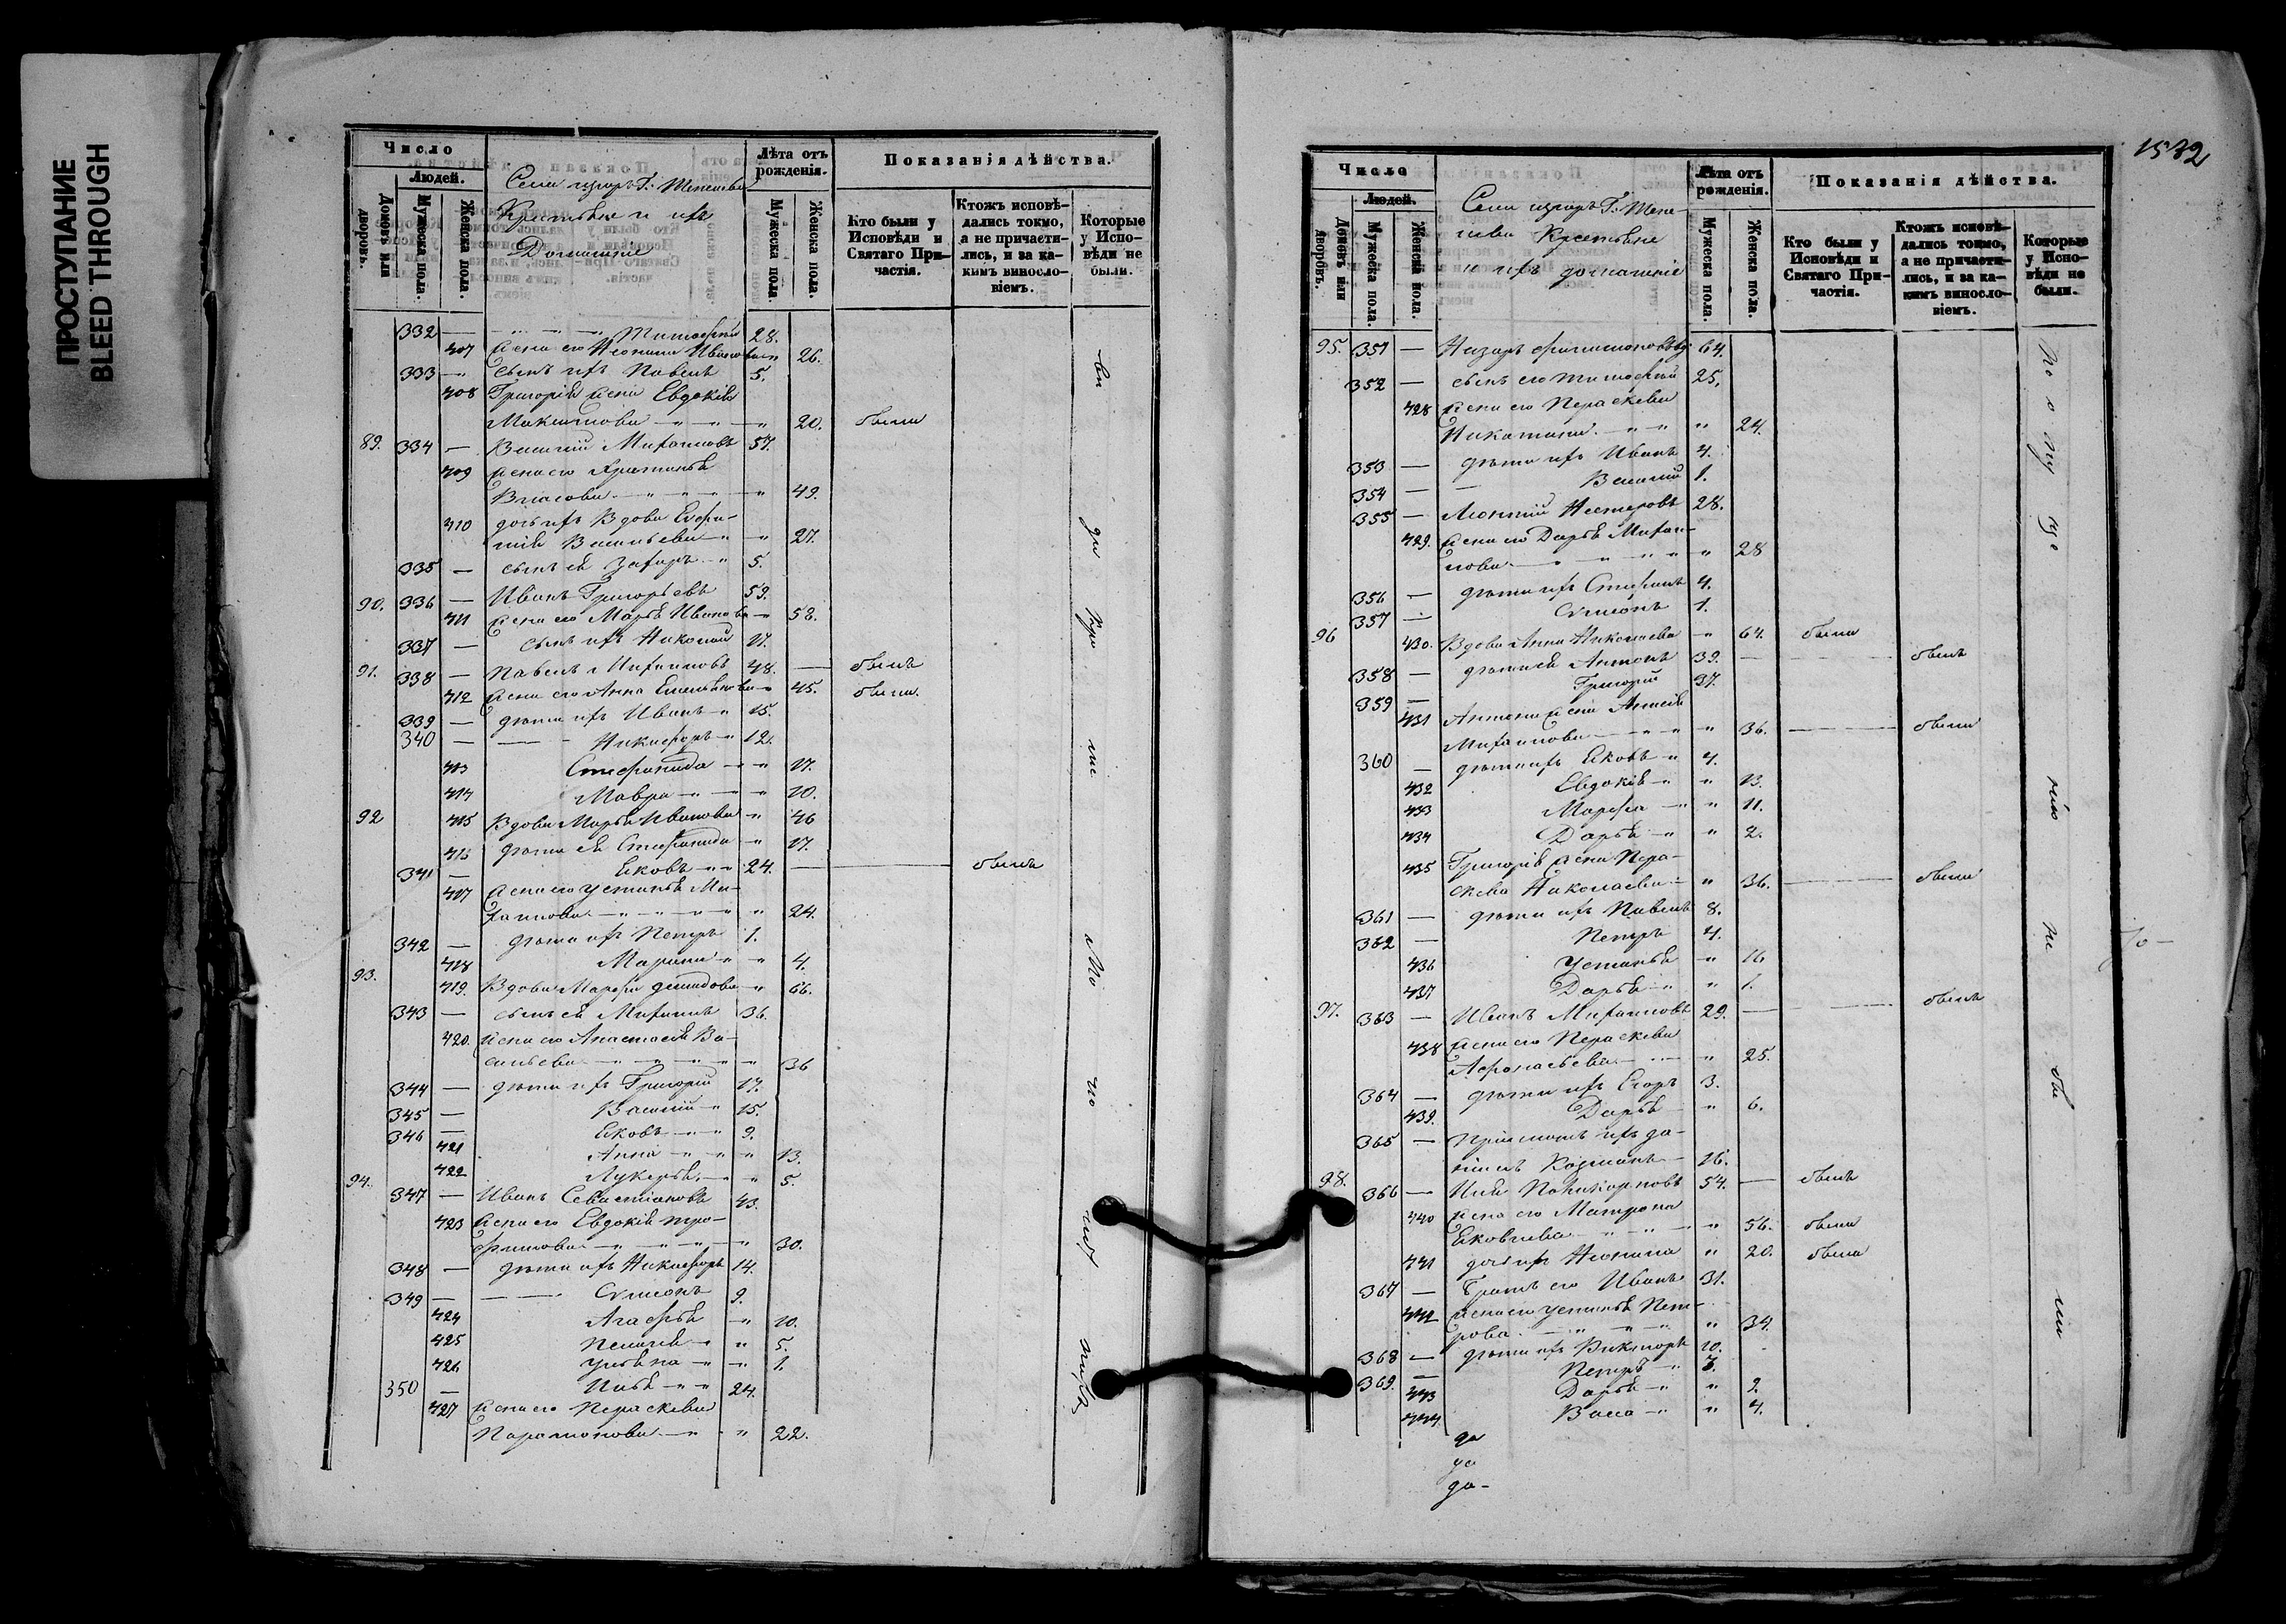 ПРОСТУПАНИЕ
BLEED THROUGH
Число
Людей.
Домовъ или дворовъ.
Мужеска пола.
Женска пола.
Крестьяне и ихъ
Домашніе
Лѣта отъ рожденія.
Мужеска пола
Женска пола.
Показанія дѣйства.
Кто были у Исповѣди и Святаго Причастія.
Ктожъ исповѣдались токмо, а не причастились, и за какимъ винословіемъ.
Которые у Исповѣди не были.
332 — Тимофей 28.
407 жена его Неонила Иванова 26.
333 — сынъ ихъ Павелъ 5.
408 Григорія жена Евдокія
Максимова 20. была
89. 334 — Василій Михаиловъ 57.
409 жена его Христинья
Власова 49.
410 дочь ихъ Вдова Евфи-
мія Васильева 27.
335 — сынъ ея Захаръ 5.
90. 336 — Иванъ Григорьевъ 59.
411 жена его Марья Иванова 58.
337 — сынъ ихъ Николай 17.
91. 338 — Павелъ Михаиловъ 48. — былъ
412 жена его Анна Емельянова 45. была
339 — дѣти ихъ Иванъ 15.
340 — Никифоръ 12.
413 Стефанида 17.
414 Мавра 10.
92 415 Вдова Марья Иванова 46
416 дѣти ея Стефанида 17.
341 — Яковъ 24. — былъ
417 жена его Устинья Ми-
хаилова 24.
342 — дѣти ихъ Петръ 1.
418 Марина 4.
93. 419. Вдова Марфа Демидова 66.
343 — сынъ ея Михаилъ 36.
420. жена его Анастасія Ва-
сильева 36
344 — дѣти ихъ Григорій 17.
345 — Василій 15.
346 — Яковъ 9.
421 Анна 13.
422 Лукерья 5.
94. 347 — Иванъ Севастіановъ 43.
423 жена его Евдокія Тро-
фимова 30.
348 — дѣти ихъ Никифоръ 14.
349 — Симеонъ 9.
424 Агафья 10.
425 Пелагея 5.
426 Ульяна 1.
350 — Илья 24.
427 жена его Параскева
Парамонова 22.
1532
Число
Людей.
Домовъ или дворовъ.
Мужеска пола.
Женска пола.
Крестьяне
и ихъ домашніе
Лѣта отъ рожденія.
Мужеска пола.
Женска пола.
Показанія дѣйства.
Кто были у Исповѣди и Святаго Причастія.
Ктожъ исповѣдались токмо, а не причастились, и за какимъ винословіемъ.
Которые у Исповѣди не были.
95. 351 — Назаръ Филимоновъ 64.
352 — сынъ его Тимофей 25.
428 жена его Параскева
Никитина 24.
353 — дѣти ихъ Иванъ 4.
354 — Василій 1.
355 — Леонтій Нестеровъ 28.
429. жена его Дарья Михаи-
лова 28
356 — дѣти ихъ Стефанъ 4.
357 — Симеонъ 1.
96 430. Вдова Анна Николаева 64. была
358 — дѣти ея Антонъ 39. — былъ
359 — Григорій 37.
431 Антона жена Анисія
Михаилова 36. — была
360 — дѣти ихъ Яковъ 4.
432 Евдокія 13.
433 Марфа 11.
434 Дарья 2.
435 Григорія жена Пара-
скева Николаева 36. — была
361 — дѣти ихъ Павелъ 8.
362 — Петръ 4.
436 Устинья 16
437 Дарья 1.
97. 363 — Иванъ Михаиловъ 29. — былъ
438 жена его Параскева
Афанасьева 25.
364 — дѣти ихъ Егоръ 3.
439. Дарья 6.
365 —
16.
98. 366 — Илья Поликарповъ 54. — былъ
440 жена его Матрона
Яковлева 56. была
441 дочь ихъ Неонила 20. была
367 — Братъ его Иванъ 31.
442 жена его Устинья Пет-
рова 34.
368 — дѣти ихъ Викторъ 10.
369. — Петръ
443 Дарья 9
444. Васса 4.
да
да-